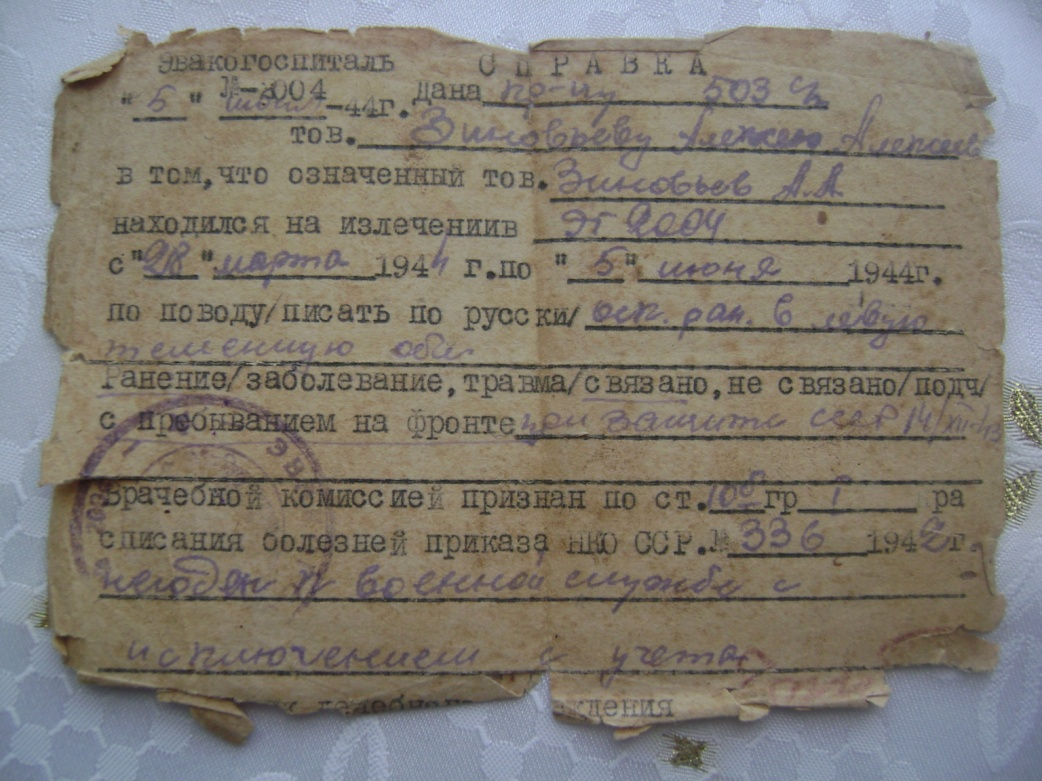 Эвакогоспиталь СПРАВКА
№-2004 Дана кр-цу 503 сп
"5" июня -44г.
тов. Зиновьеву Алексею Алексеев
в том,что означенный тов. Зиновьев А.А
находился на излечениив ЭГ 2004
с "28" марта 1944 г.по "5" июня 1944г.
по поводу/писать по русски/ оск. ран. в левую
теменную обл.
Ранение/заболевание,травма/связано,не связано/подч/
с пребыванием на фронте при защите СССР 14/XII-43
Врачебной комиссией признан по ст. гр I ра
списания болезней приказа НКО ССР.№ 336 1942г
негоден к военной службе с
исключением с учета
лечебного еждения